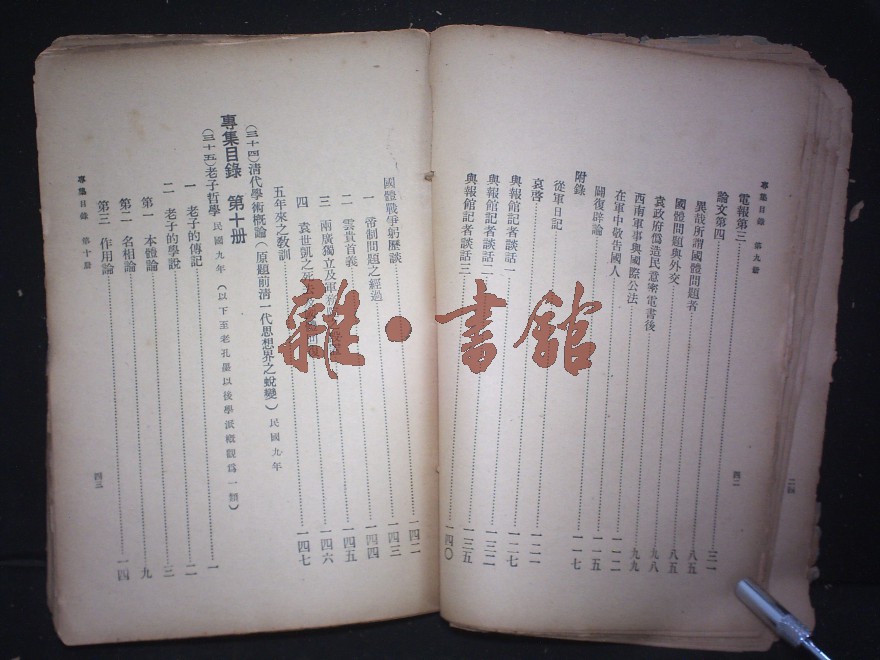 專集目錄 第九冊 四二
電報第三 三一
論文第四
異哉所謂國體問題者 八五
國體問題與外交 八五
袁政府偽造民意密電書後 九八
西南軍事與國際公法 九九
在軍中敬告國人 一一二
闢復辟論 一一五
附錄
從軍日記 一一七
哀啓 一二一
與報館記者談話一 一二七
與報館記者談話二 一三二
與報館記者談話三 一三五
一四〇
國體戰爭躬歷談 一四二
一 帝制問題之經過 一四三
二 雲貴首義 一四四
三 兩廣獨立及軍務院 一四五
四 袁世凱之死 一四六
五年來之教訓 一四七
(三十四)清代學術概論(原題前清一代思想界之蛻變)民國九年
專集目錄 第十冊
(三十五)老子哲學 民國九年 (以下至老孔墨以後學派概觀為一類)
一 老子的傳記 一
二 老子的學說 二
第一 本體論 三
第二 名相論 九
第三 作用論 一四
專集目錄 第十冊 四三
二四
雜·書館